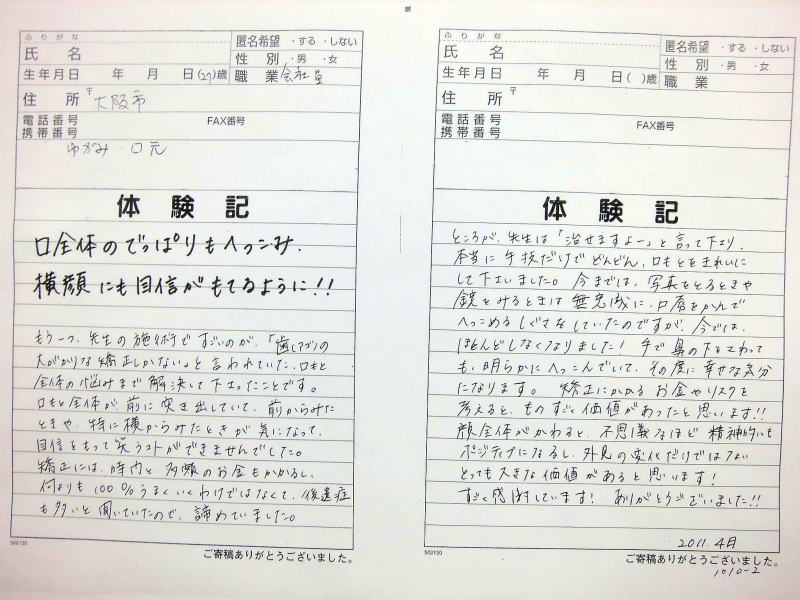 ふりがな
氏 名
匿名希望 ・する ・しない
性 別 ・男 ・女
生年月日 年 月 日(27)歳
職 業 会社員
住 所 〒 大阪市
電話番号 FAX番号
携帯番号
ゆがみ・口元
体験記
口全体のでっぱりもへっこみ、
横顔にも自信がもてるように!!
もう一つ、先生の施術ですごいのが、「歯しつの
大がかりな矯正しかない」と言われていた、口もと
全体の悩みまで解決して下さったことです。
口もと全体が、前に突き出していて、前からみた
ときや、特に横からみたときが気になって、
自信をもって笑うコトができませんでした。
矯正には、時間と、多額のお金もかかるし、
何よりも100%うまくいくわけではなくて、後遺症
も多いと聞いていたので、諦めていました。
502130
ご寄稿ありがとうございました。
ふりがな
氏 名
匿名希望 ・する ・しない
性 別 ・男 ・女
生年月日 年 月 日( )歳
職 業
住 所 〒
電話番号 FAX番号
携帯番号
体験記
ところが、先生は「治せますよー」と言って下さり、
本当に手技だけでどんどん、口もとをきれいに
して下さいました。今までは、写真をとるときや
鏡をみるときは無意識に、口唇をかんで
へっこめるしぐさをしていたのですが、今では、
ほとんどしなくなりました!手で鼻の下をさわって
も、明らかにへっこんでいて、その度に幸せな気分
になります。矯正にかかるお金やリスクを
考えると、ものすごい価値があったと思います!!
顔全体がかわると、不思議なほど精神的にも
ポジティブになるし、外見の変化だけではない
とっても大きな価値があると思います!
すごく感謝しています!ありがとうございました!!
2011.4月
502130
ご寄稿ありがとうございました。
1010-2